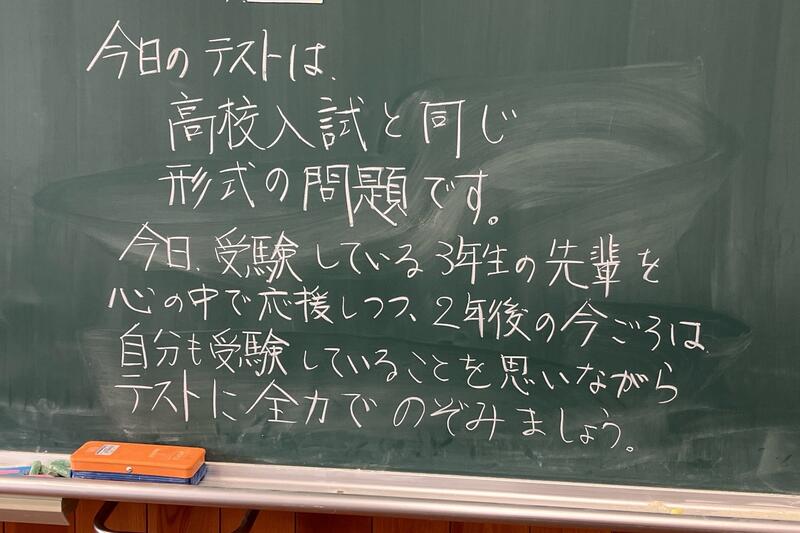 今日のテストは、
高校入試と同じ
形式の問題です。
今日、受験している3年生の先輩を
心の中で応援しつつ、2年後の今ごろは、
自分も受験していることを思いながら
テストに全力でのぞみましょう。